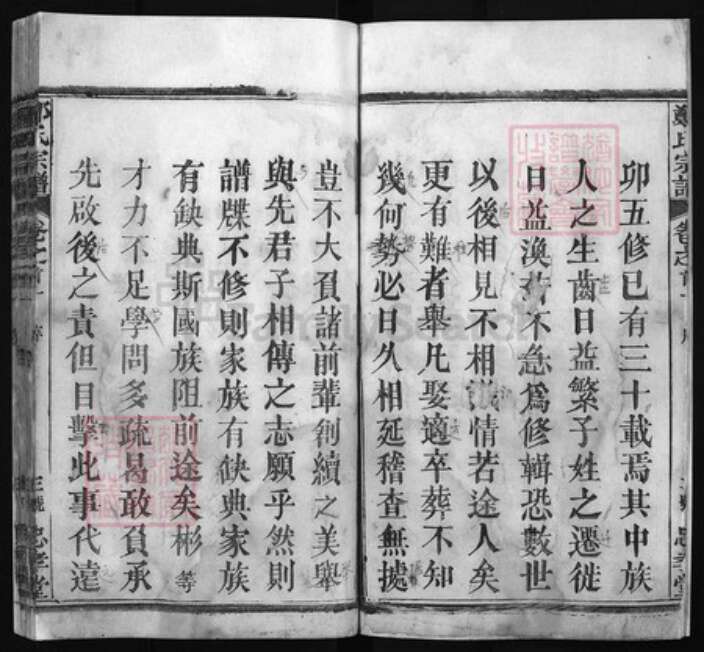 鄭氏宗譜
卯五修已有三十載焉其中族
人之生齒日益繁子姓之遷徙
日益渙若不急爲修輯恐數世
以後相見不相識情若途人矣
更有難者舉凡娶適卒葬不知
幾何勢必日久相延稽查無㨿
豈不大負諸前輩創續之美舉
與先君子相傳之志願乎然則
譜牒不修則家族有缺典家族
有缺典斯國族阻前途矣彬等
才力不足學問多疏曷敢負承
先啟後之責但目擊此事代遠
氏宗譜
忠孝堂